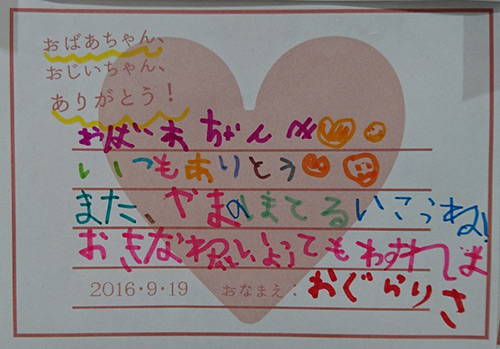 おばあちゃん、
おじいちゃん、
ありがとう！
おばあちゃんへ
いつもありとう
また、やまのほてるいこうね!
おきな
ても わすれ
2016・9・19 おなまえ：おぐらりさ